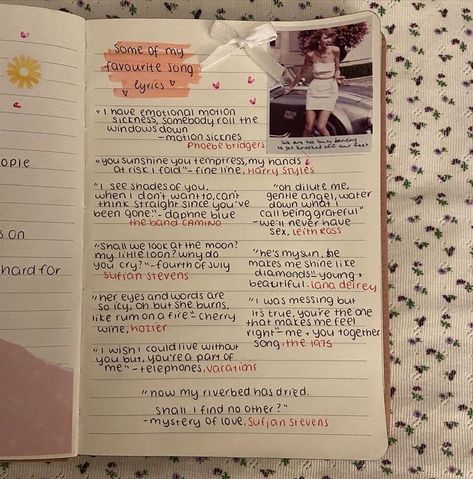 ople
s on
hard for
some of my
favourite song
lyrics
we are too busy dancing
to get knocked off our feet
"I have emotional motion
sickness, somebody roll the
windows down
- motion sicknes
Phoebe bridgers
"you sunshine you temptress, my hands
at risk i fold" - fine line, Harry styles
"I see shades of you,
when I don't want to, can't
think straight since you've
been gone" - daphne blue
the band CAMINO
"oh dilute me,
gentle angel, water
down what I
call being grateful"
- we'll never have
sex, leith ross
"Shall we look at the moon?
my little loon? why do
you cry?" - fourth of July
Sufjan Stevens
"he's my sun, he
makes me shine like
diamonds" - young +
beautiful. lana delrey
"her eyes and words are
so icy, oh but she burns,
like rum on a fire" - cherry
wine, hozier
"I was messing but
it's true, you're the one
that makes me feel
right" - me + you together
song. the 1975
"I wish I could live without
you but, you're a part of
me" - telephones, vacations
"now my riverbed has dried.
Shall I find no other?"
- mystery of love. Sufjan Stevens